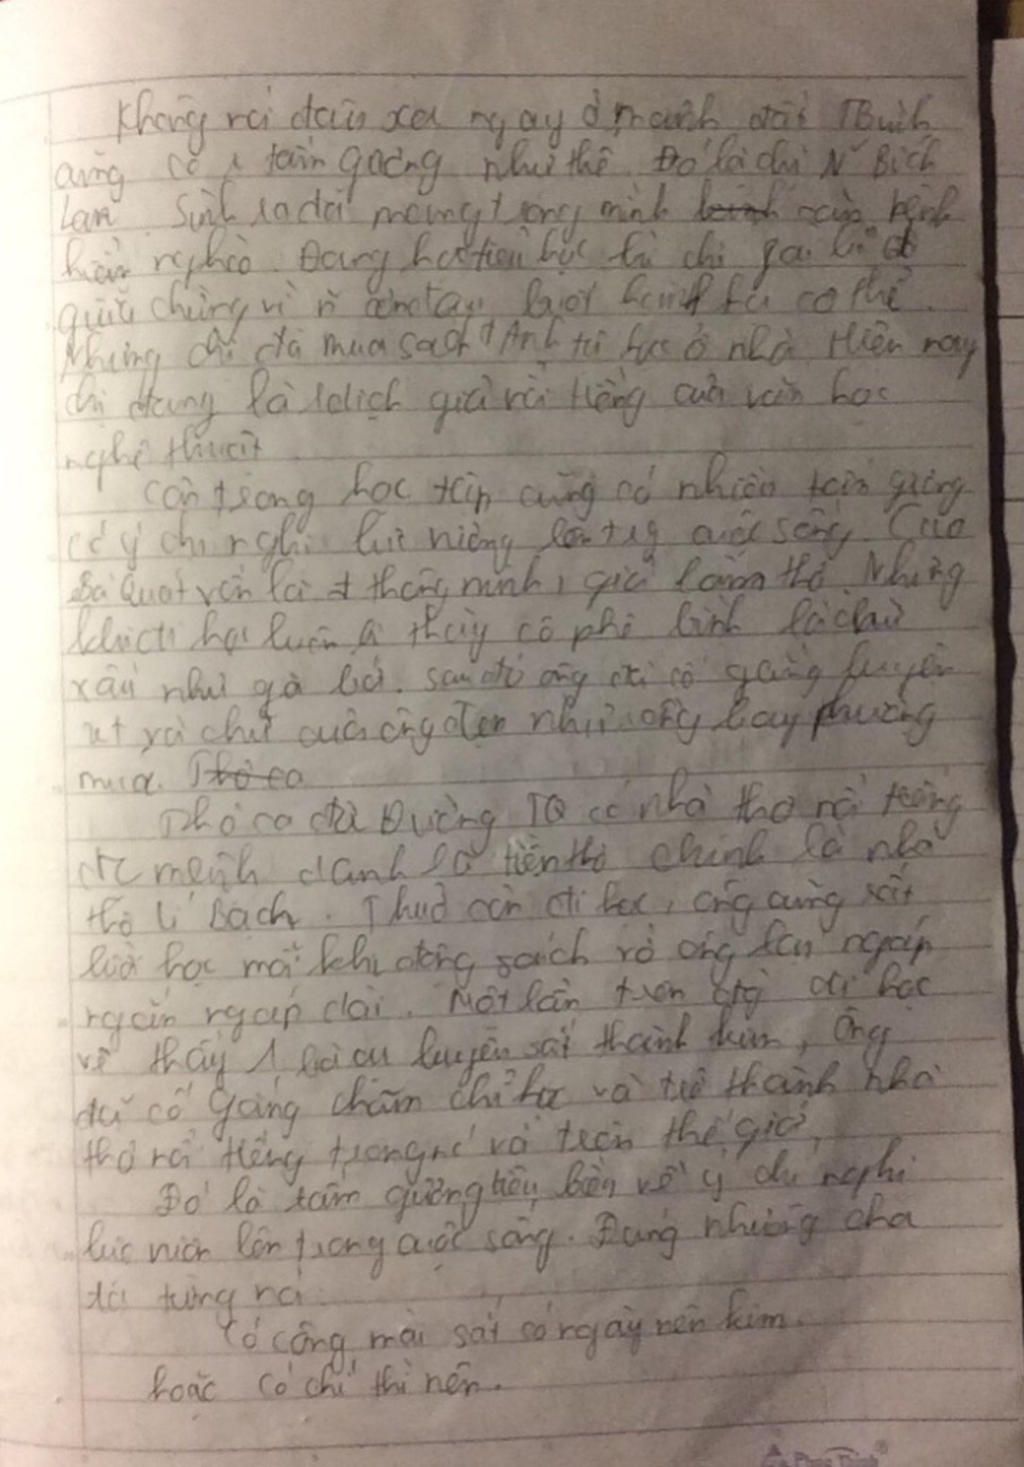 Không nói đâu xa ngay ở mảnh đất TBình
cũng có 1 tấm gương như thế. Đó là chị N~ Bích
Lan. Sinh ra đời mang trong mình căn bệnh
nghèo. Đang học tiểu học thì chị
giữa chừng vì
Nhưng chị đã mua sách T Anh tự học ở nhà Hiện nay
chị đang là 1 dịch giả nổi tiếng của văn học
nghệ thuật
Còn trong học tập cũng có nhiều tấm gương
có ý chí nghị lực lên cuộc sống. Cao
Bá Quát vốn là thông minh, giỏi làm thơ. Nhưng
khi đi học luôn bị thầy cô phê bình là chữ
xấu như gà bới. sau đó ông đã cố gắng luyện
và chữ của ông đẹp như rồng bay phượng
múa. Thơ ca
Thơ ca đời Đường TQ có nhà thơ nổi tiếng
đc mệnh danh là tiên thơ chính là nhà
thơ Lí Bạch. Thuở còn đi học, ông cũng rất
lười học mỗi khi động sách vở ông lại ngáp
ngắn ngáp dài. Một lần trên đg đi học
về thấy 1 bà cụ luyện sắt thành kim, ông
đã cố gắng chăm chỉ học và trở thành nhà
thơ nổi tiếng trong nc và trên thế giới,
Đó là tấm gương tiêu biểu về ý chí nghị
lực vươn lên trong cuộc sống. Đúng như ông cha
ta từng nói
Có công mài sắt có ngày nên kim.
hoặc Có chí thì nên.